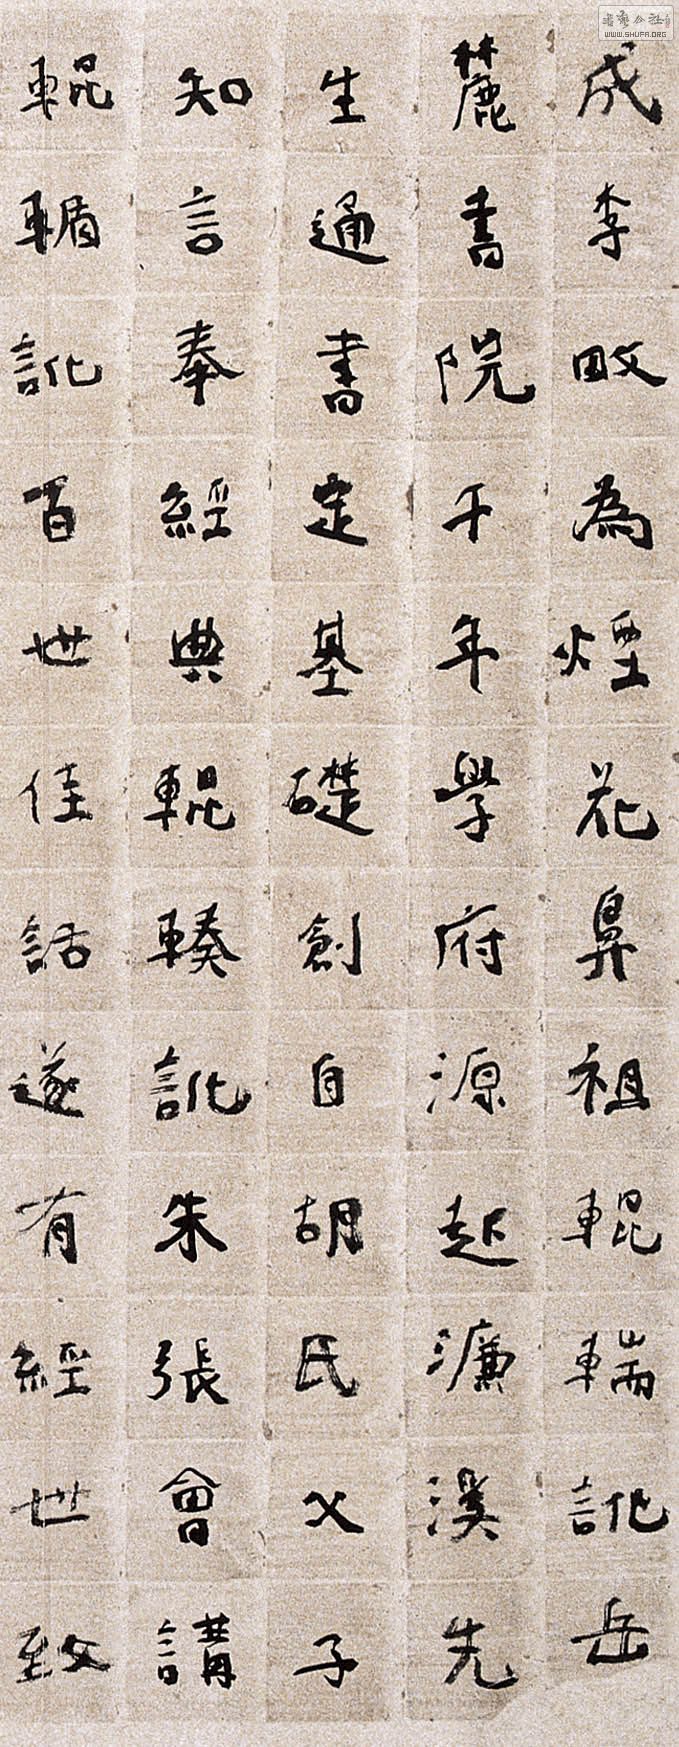 成李畋為煙花鼻祖輥輲訛岳
麓書院千年學府源起濂溪先
生通書定基礎創自胡氏父子
知言奉經典輥輳訛朱張會講
輥輴訛百世佳話遂有經世致
WWW.SHUFA.ORG